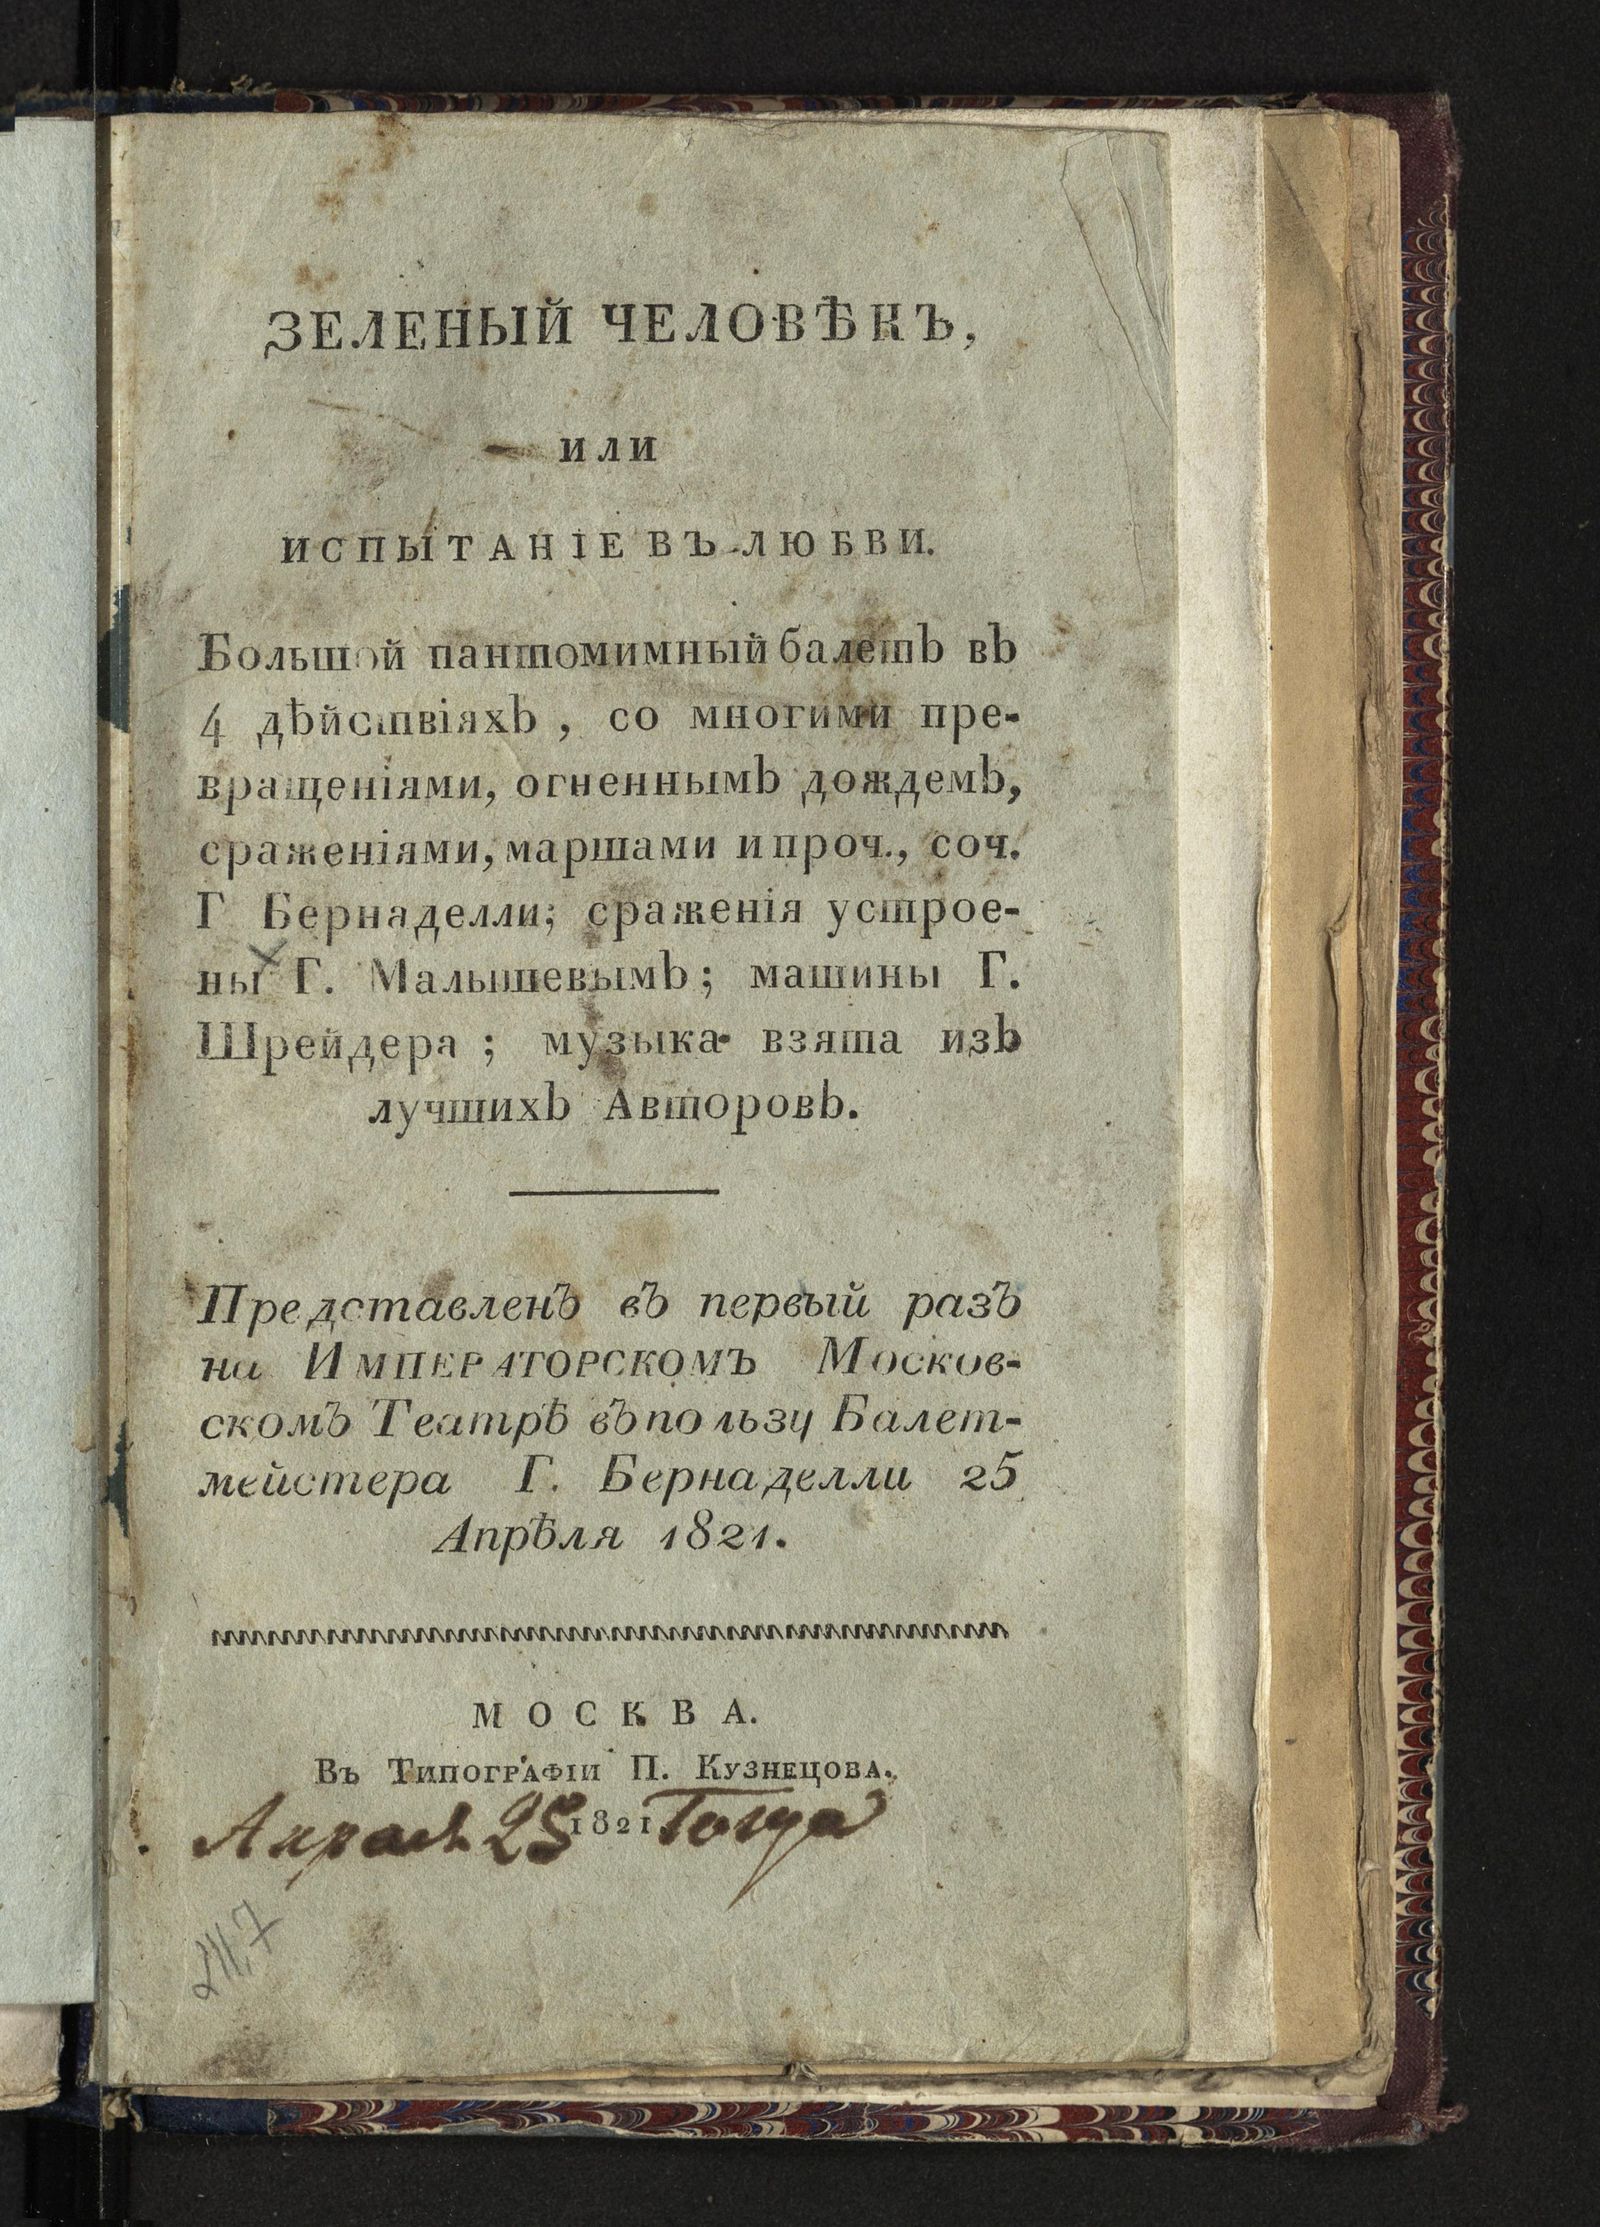 ЗЕЛЕНЫЙ ЧЕЛОВѢКЪ,
ИЛИ
ИСПЫТАНІЕ ВЪ ЛЮБВИ.
Большой пантомимный балетъ въ
4 дѣйствіяхъ, со многими пре-
вращеніями, огненнымъ дождемъ,
сраженіями, маршами и проч., соч.
Г Бернаделли; сраженія устрое-
ны Г. Малышевымъ; машины Г.
Шрейдера; музыка взята изъ
лучшихъ Авторовъ.
Представленъ въ первый разъ
на ИМПЕРАТОРСКОМЪ Москов-
скомъ Театрѣ въ пользу Балет-
мейстера Г. Бернаделли 25
Апрѣля 1821.
МОСКВА.
Въ Типографіи П. Кузнецова.
25 1821 Года